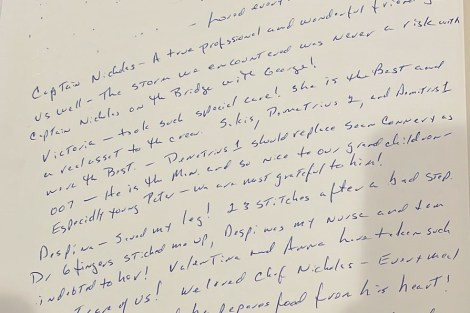 - Loved every
Captain Nicholas - A true professional and wonderful friend
us well - The storm we encountered was never a risk with
Captain Nicholas on the Bridge with George!
Victoria - took such special care! She is the Best and
a real asset to the crew. Sakis, Demetrius 2, and Demitris 1
were the Best. - Demetrius 1 should replace Sean Connery as
007 - He is the Man. and so nice to our grandchildren -
Especially young Peter - we are most grateful to him!
Despina - Saved my leg! 13 stitches after a bad step.
Dr 6 fingers sticked me up, Despina was my nurse and I am
indebted to her! Valentina and Anna have taken such
care of us! We loved Chef Nicholas - Every meal
he prepares food from his heart!